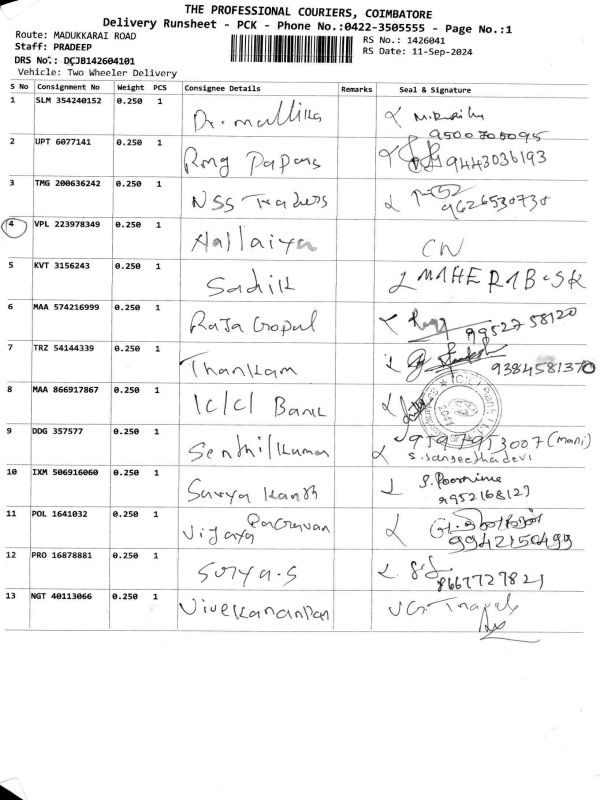 THE PROFESSIONAL COURIERS, COIMBATORE
Delivery Runsheet - PCK - Phone No.:0422-3505555 - Page No.:1
Route: MADUKKARAI ROAD
RS No.: 1426041
Staff: PRADEEP
RS Date: 11-Sep-2024
DRS No.: DCJB142604101
Vehicle: Two Wheeler Delivery
S No Consignment No Weight PCS Consignee Details Remarks Seal & Signature
1 SLM 354240152 0.250 1 Dr. mallika
9500705095
2 UPT 6077141 0.250 1 Papars 9443036193
3 TMG 200636242 0.250 1 NSS Traders
9626530730
4 VPL 223978349 0.250 1 Nallaiya CN
5 KVT 3156243 0.250 1 Sadik
6 MAA 574216999 0.250 1 Raja Gopal 9952758120
7 TRZ 54144339 0.250 1 Thankam 9384581370
8 MAA 866917867 0.250 1 ICICI Bank
9 DDG 357577 0.250 1 Senthilkumar 9597953007 (mani)
S. Sangeethadevi
10 IXM 506916060 0.250 1 Surya Kanth S. Poornima
9952168127
11 POL 1641032 0.250 1 Vijaya Ragavan
9942150499
12 PRO 16878881 0.250 1 Surya.S
8667727821
13 NGT 40113066 0.250 1 Vivekanandan Travels